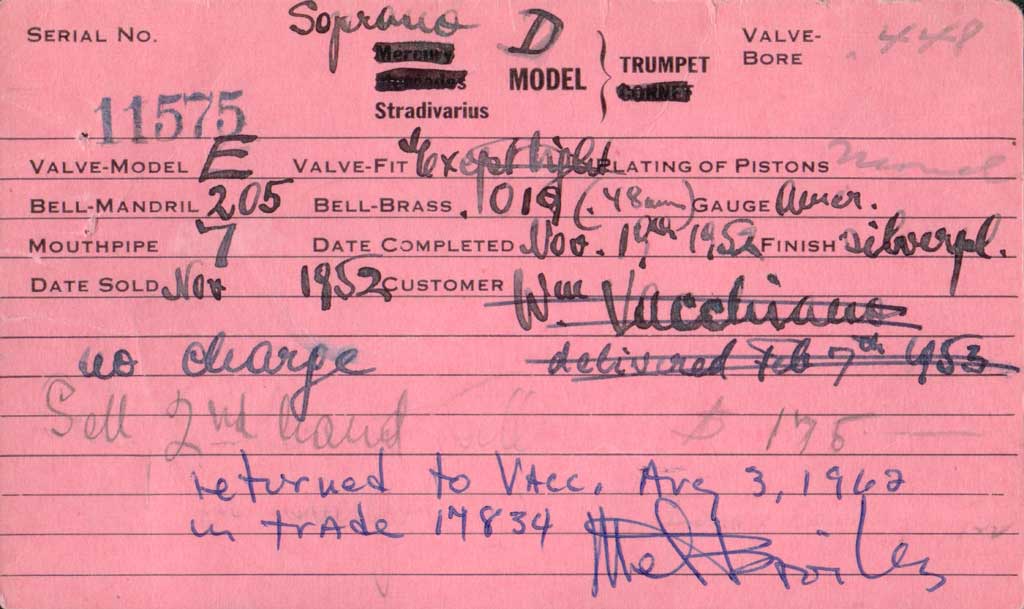 Soprano D
SERIAL NO. Mercury MODEL TRUMPET VALVE-BORE .448
CORNET
11575 Stradivarius
VALVE-MODEL E VALVE-FIT PLATING OF PISTONS
BELL-MANDRIL 205 BELL-BRASS .019 (.48mm) GAUGE Amer.
MOUTHPIPE 7 DATE COMPLETED Nov. 19th 1952 FINISH silverpl.
DATE SOLD Nov 1952 CUSTOMER Wm Vacchiano
no charge delivered Feb 7th 1953
Sell 2nd hand $ 175
returned to VAcc. Aug 3, 1962
in trAde 17834